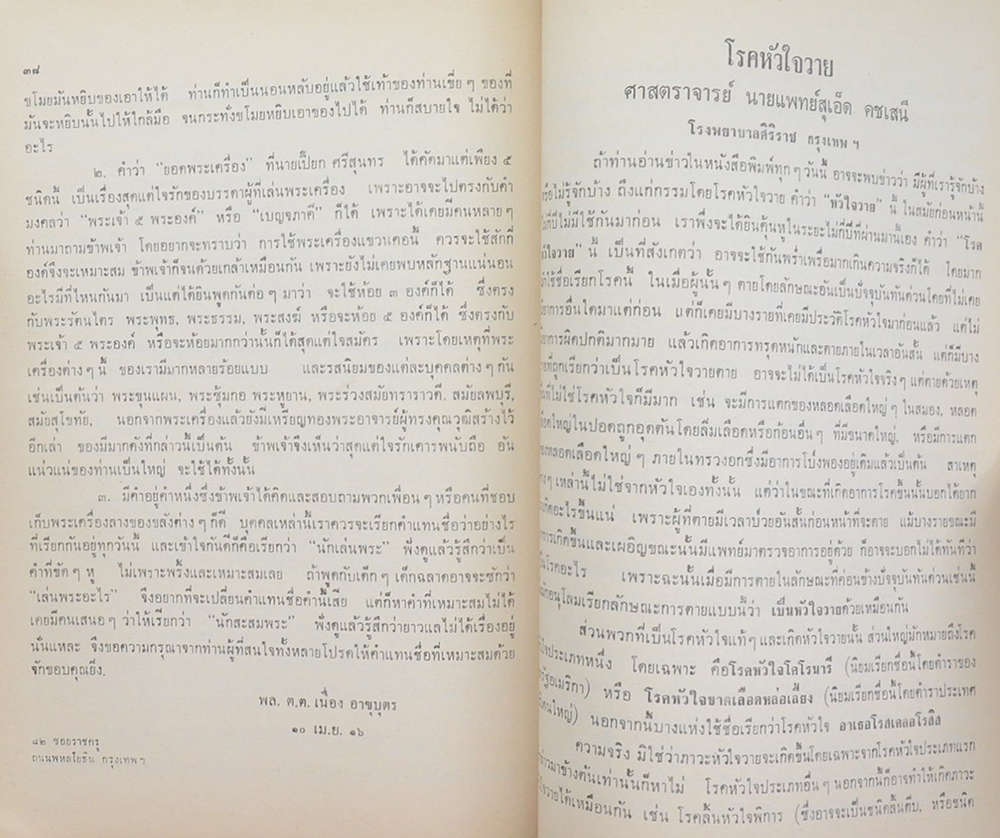 ๓๘
ขโมยมันหยิบของเอาให้ได้ ท่านก็ทำเป็นนอนหลับอยู่แล้วใช้เท้าของท่านเขี่ย ๆ ของที่
มันจะหยิบนั้นไปให้ใกล้มือ จนกระทั่งขโมยหยิบเอาของไปได้ ท่านก็สบายใจ ไม่ได้ว่า
อะไร
๒. คำว่า “ยอดพระเครื่อง” ที่นายเปี๊ยก ศรีสุนทร ได้คัดมาแต่เพียง ๕
ชนิดนี้ เป็นเรื่องสุดแต่ใจรักของบรรดาผู้ที่เล่นพระเครื่อง เพราะอาจจะไปตรงกับคำ
มงคลว่า “พระเจ้า ๕ พระองค์” หรือ “เบญจภาคี” ก็ได้ เพราะได้เคยมีคนหลาย ๆ
ท่านมาถามข้าพเจ้า โดยอยากจะทราบว่า การใช้พระเครื่องแขวนคอนี้ ควรจะใช้สักกี่
องค์จึงจะเหมาะสม ข้าพเจ้าก็จนด้วยเกล้าเหมือนกัน เพราะยังไม่เคยพบหลักฐานแน่นอน
อะไรมีที่ไหนกันมา เป็นแต่ได้ยินพูดกันต่อ ๆ มาว่า จะใช้ห้อย ๓ องค์ก็ได้ ซึ่งตรง
กับพระรัตนไตร พระพุทธ, พระธรรม, พระสงฆ์ หรือจะห้อย ๕ องค์ก็ได้ ซึ่งตรงกับ
พระเจ้า ๕ พระองค์ หรือจะห้อยมากกว่านั้นก็ได้สุดแต่ใจสมัคร เพราะโดยเหตุที่พระ
เครื่องต่าง ๆ นี้ ของเรามีมากหลายร้อยแบบ และรสนิยมของแต่ละบุคคลต่าง ๆ กัน
เช่นเป็นต้นว่า พระขุนแผน, พระซุ้มกอ พระหูยาน, พระร่วงสมัยทราราวดี, สมัยลพบุรี,
สมัยสุโขทัย, นอกจากพระเครื่องแล้วยังมีเหรียญทองพระอาจารย์ผู้ทรงคุณวุฒิสร้างไว้
อีกเล่า ของมีมากดังที่กล่าวนี้เป็นต้น ข้าพเจ้าจึงเห็นว่าสุดแต่ใจรักเคารพนับถือ อัน
แน่วแน่ของท่านเป็นใหญ่ จะใช้ได้ทั้งนั้น
๓. มีคำอยู่คำหนึ่งซึ่งข้าพเจ้าได้คิดและสอบถามพวกเพื่อน ๆ หรือคนที่ชอบ
เก็บพระเครื่องลางของขลังต่าง ๆ ก็ดี บุคคลเหล่านี้เราควรจะเรียกคำแทนชื่อว่าอย่างไร
ที่เรียกกันอยู่ทุกวันนี้ และเข้าใจกันดีก็คือเรียกว่า “นักเล่นพระ” ฟังดูแล้วรู้สึกว่าเป็น
คำที่ขัด ๆ หู ไม่เพราะพริ้งและเหมาะสมเลย ถ้าพูดกับเด็ก ๆ เด็กฉลาดอาจจะซักว่า
“เล่นพระอะไร” จึงอยากที่จะเปลี่ยนคำแทนชื่อคำนี้เสีย แต่ก็หาคำที่เหมาะสมไม่ได้
เคยมีคนเสนอ ๆ ว่าให้เรียกว่า “นักสะสมพระ” ฟังดูแล้วรู้สึกว่ายาวแลไม่ได้เรื่องอยู่
นั่นแหละ จึงขอความกรุณาจากท่านผู้ที่สนใจทั้งหลายโปรดให้คำแทนชื่อที่เหมาะสมด้วย
จักขอบคุณยิ่ง.
พล. ต.ต. เนื่อง อาขุบุตร
๑๐ เม.ย. ๑๖
๔๒ ซอยราชครู
ถนนพหลโยธิน กรุงเทพฯ
โรคหัวใจวาย
ศาสตราจารย์ นายแพทย์สุเอ็ด คชเสนี
โรงพยาบาลศิริราช กรุงเทพ ฯ
ถ้าท่านอ่านข่าวในหนังสือพิมพ์ทุก ๆ วันนี้ อาจจะพบข่าวว่า มีผู้ที่เรารู้จักบ้าง
หรือไม่รู้จักบ้าง ถึงแก่กรรมโดยโรคหัวใจวาย คำว่า “หัวใจวาย” นี้ ในสมัยก่อนหน้านี้
ไม่กี่ปีไม่มีใช้กันมาก่อน เราพึ่งจะได้ยินคุ้นหูในระยะไม่กี่ปีที่ผ่านมานี้เอง คำว่า “โรค
หัวใจวาย” นี้ เป็นที่สังเกตว่า อาจจะใช้กันพร่ำเพรื่อมากเกินความจริงก็ได้ โดยมาก
ใช้ชื่อเรียกโรคนี้ ในเมื่อผู้นั้น ๆ ตายโดยลักษณะอันเป็นปัจจุบันทันด่วนโดยที่ไม่เคย
มีอาการอื่นใดมาแต่ก่อน แต่ก็เคยมีบางรายที่เคยมีประวัติโรคหัวใจมาก่อนแล้ว แต่ไม่
มีอาการผิดปกติมากมาย แล้วเกิดอาการทรุดหนักและตายภายในเวลาอันสั้น แต่ก็มีบาง
รายที่ถูกเรียกว่าเป็นโรคหัวใจวายตาย อาจจะไม่ได้เป็นโรคหัวใจจริง ๆ แต่ตายด้วยเหตุ
อื่นที่ไม่ใช่โรคหัวใจก็มีมาก เช่น จะมีการแตกของหลอดเลือดใหญ่ ๆ ในสมอง, หลอด
เลือดใหญ่ในปอดถูกอุดตันโดยลิ่มเลือดหรือก้อนอื่น ๆ ที่มีขนาดใหญ่, หรือมีการแตก
ของหลอดเลือดใหญ่ ๆ ภายในทรวงอกซึ่งมีอาการโป่งพองอยู่เดิมแล้วเป็นต้น สาเหตุ
ต่าง ๆ เหล่านี้ไม่ใช่จากหัวใจเองทั้งนั้น แต่ว่าในขณะที่เกิดอาการโรคขึ้นนั้นบอกได้ยาก
เกิดอะไรขึ้นแน่ เพราะผู้ที่ตายมีเวลาป่วยอันสั้นก่อนหน้าที่จะตาย แม้บางรายขณะมี
อาการเกิดขึ้นและเผอิญขณะนั้นมีแพทย์มาตรวจอาการอยู่ด้วย ก็อาจจะบอกไม่ได้ทันทีว่า
เป็นโรคอะไร เพราะฉะนั้นเมื่อมีการตายในลักษณะที่ค่อนข้างปัจจุบันทันด่วนเช่นนี้
มักอนุโลมเรียกลักษณะการตายแบบนี้ว่า เป็นหัวใจวายด้วยเหมือนกัน
ส่วนพวกที่เป็นโรคหัวใจแท้ ๆ และเกิดหัวใจวายนั้น ส่วนใหญ่มักหมายถึงโรค
หัวใจประเภทหนึ่ง โดยเฉพาะ คือโรคหัวใจโคโรนารี (นิยมเรียกชื่อนี้โดยตำราของ
สหรัฐอเมริกา) หรือ โรคหัวใจขาดเลือดหล่อเลี้ยง (นิยมเรียกชื่อนี้โดยตำราประเทศ
นอกจากนี้บางแห่งใช้ชื่อเรียกว่าโรคหัวใจ อาเธอโรสเคลอโรสิส
ความจริง มิใช่ว่าภาวะหัวใจวายจะเกิดขึ้นโดยเฉพาะจากโรคหัวใจประเภทแรก
กล่าวมาข้างต้นเท่านั้นก็หาไม่ โรคหัวใจประเภทอื่น ๆ นอกจากนี้ก็อาจทำให้เกิดภาวะ
หัวใจวายได้เหมือนกัน เช่น โรคลิ้นหัวใจพิการ (ซึ่งอาจจะเป็นชนิดลิ้นตีบ, หรือชนิด